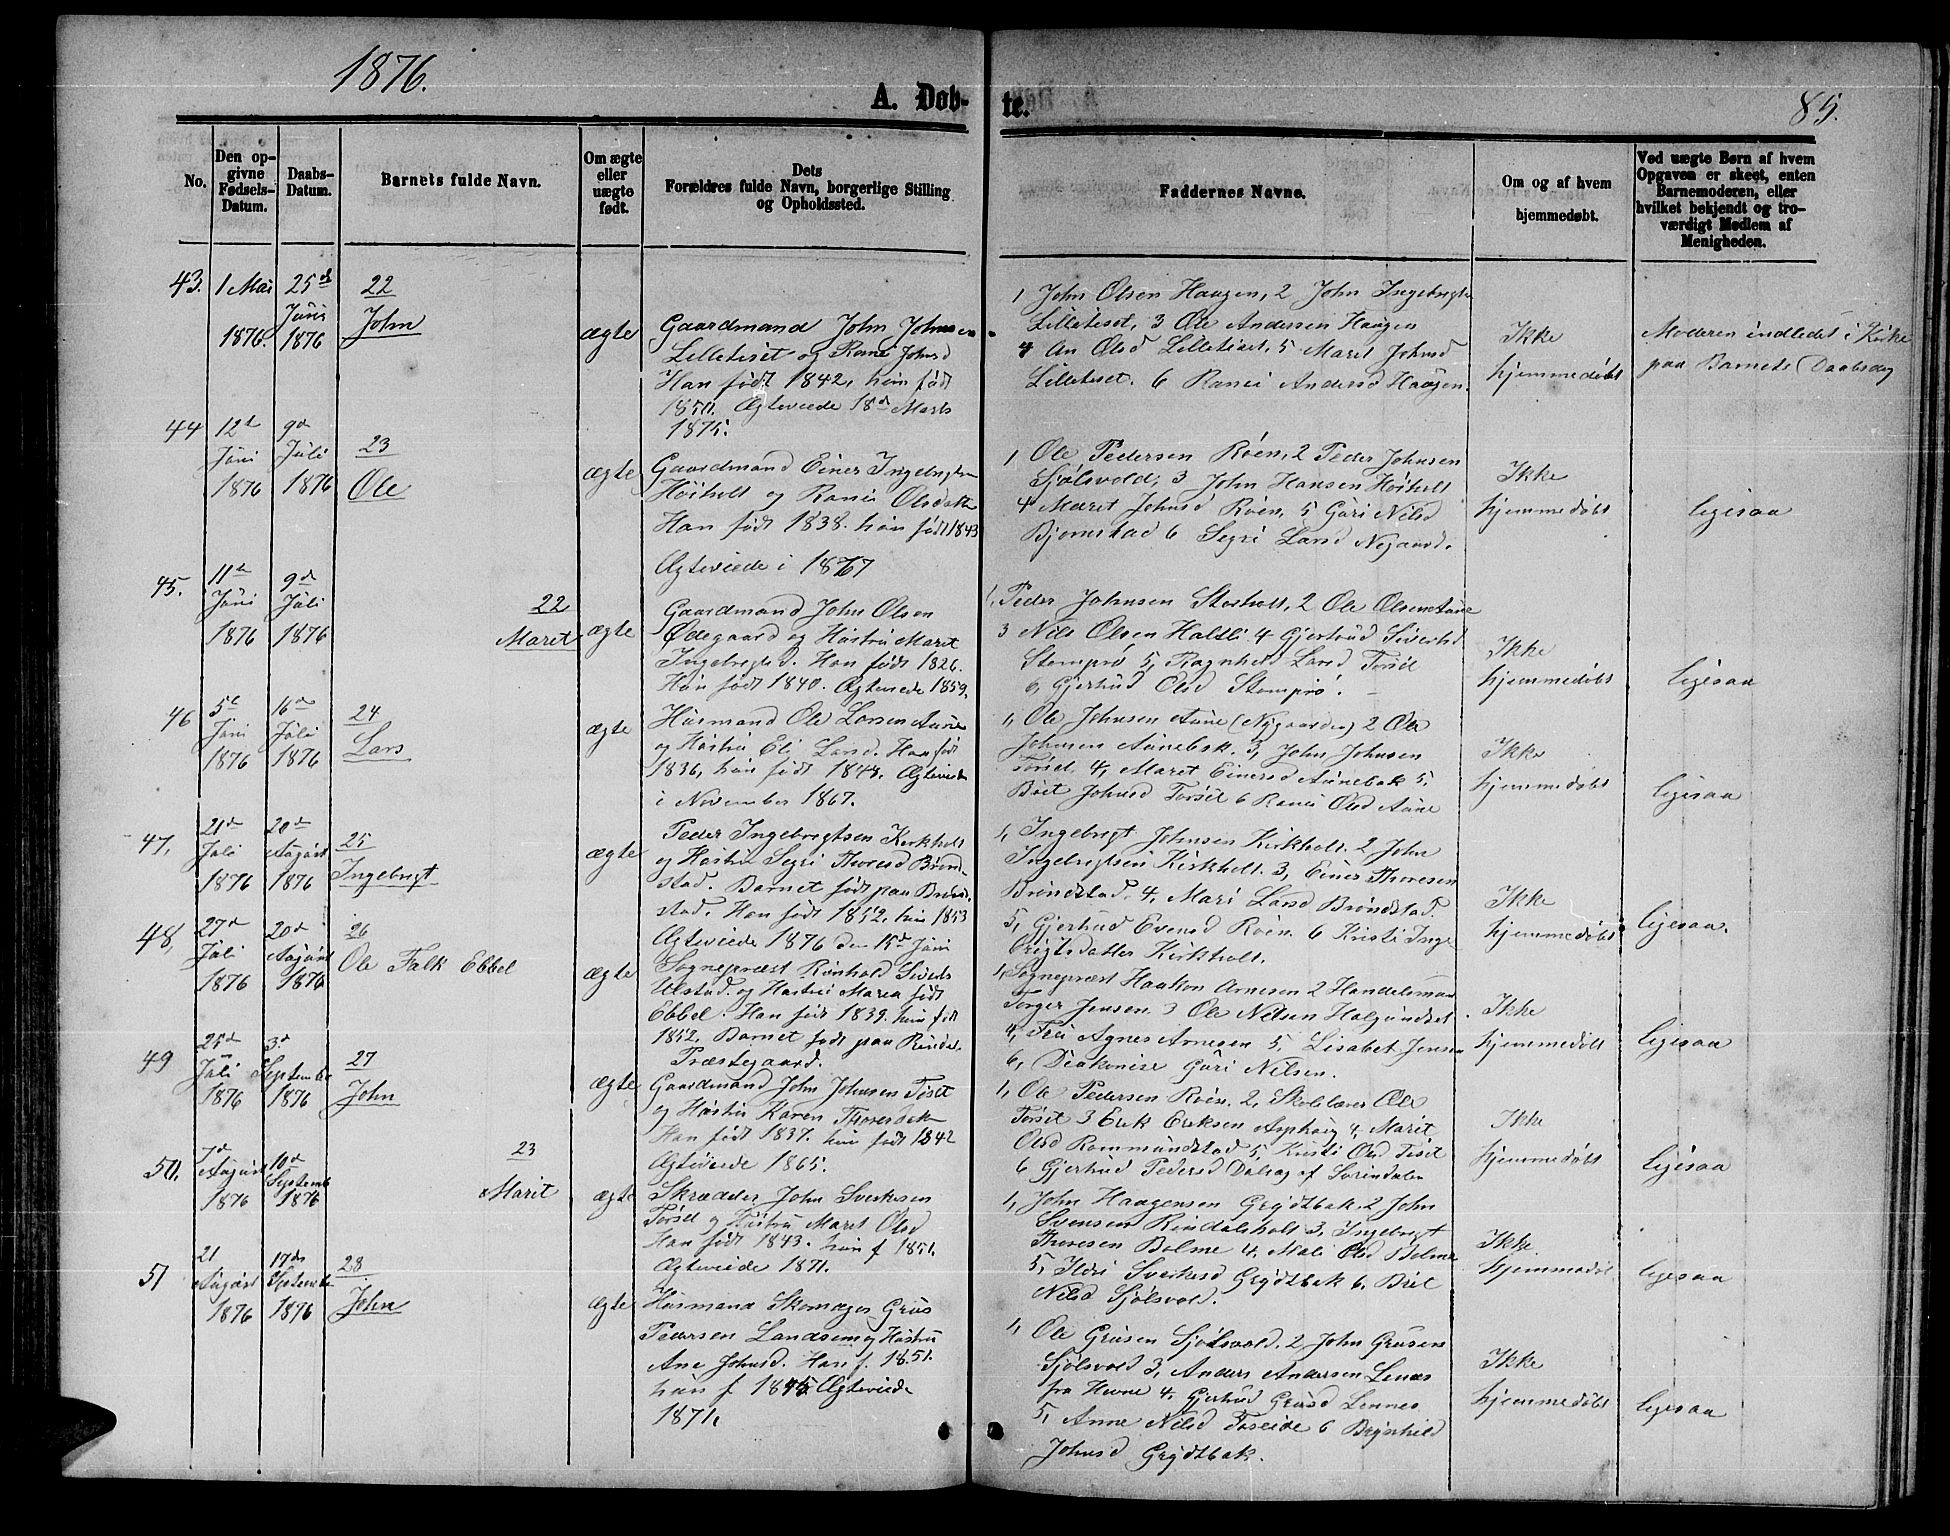 1876.
A. Døb-
te.
85.
No.
Den op-
givne
Fødsels-
Datum.
Daabs-
Datum.
Barnets fulde Navn.
Om ægte
eller
uægte
født.
Dets
Forældres fulde Navn, borgerlige Stilling
og Opholdssted.
Faddernes Navne.
Om og af hvem
hjemmedøbt.
Ved uægte Børn af hvem
Opgaven er skeet, enten
Barnemoderen, eller
hvilket bekjendt og tro-
værdigt Medlem af
Menigheden.
43.
1 Mai
1876.
25de
Juni
1876
22
John
ægte
Gaardmand John Johnsen
Lilletiset og Rani Johnsd
Han født 1842, hun født
1850. Ægteviede 18de Marts
1875.
1 John Olsen Haugen, 2 John Ingebrigts
Lilletiset, 3 Ole Andersen Haugen
4 An Olsd Lilletiset, 5 Maret Johnsd
Lilletiset. 6 Rani Andersd Haugen.
Ikke
hjemmedøbt
Moderen indledet i Kirke
paa Barnets Daabsdag
44
12te
Juni
1876
9de
Juli
1876
23
Ole
ægte
Gaardmand Einer Ingebrigtsen
Høiholt og Rani Olsdatter
Han født 1838. hun født 1843
Ægteviede i 1867
1 Ole Pedersen Røen, 2 Peder Johnsen
Sjølsvold, 3 John Hansen Høiholt
4 Maret Johnsd Røen, 5 Guri Nilsd
Bjørnstad 6 Segri Larsd Nygaard.
Ikke
hjemmedøbt
ligesaa
45.
11te
Juni
1876
9de
Juli
1876
22
Maret
ægte
Gaardmand John Olsen
Ødegaard og Hustru Maret
Ingebrigtsd. Han født 1826.
Hun født 1840. Ægteviede 1859.
1, Peder Johnsen Storholt, 2 Ole Olsen Aune
3 Nils Olsen Haldli 4 Gjertrud Siverts
Stomprø 5, Ragnhild Larsd Torset
6, Gjertrud Olsd Stomprø.
Ikke
hjemmedøbt
ligesaa
46
5te
Juni
1876
16de
Juli
1876
24
Lars
ægte
Husmand Ole Larsen Aune
og Hustru Eli Larsd. Han født
1836, hun født 1844. Ægteviede
i November 1867.
1, Ole Johnsen Aune (Nygaarden) 2 Ole
Johnsen Aunebak. 3, John Johnsen
Torset. 4, Maret Einersd Aunebak 5,
Brit Johnsd Torset 6 Rani Olsd Aune
Ikke
hjemmedøbt
ligesaa
47,
21de
Juli
1876
20de
August
1876
25
Ingebrigt
ægte
Peder Ingebrigtsen Kirkholt
og Hustru Segri Thoresd Brønd-
stad. Barnet født paa Brønd-
stad. Han født 1852. hun 1853
Ægteviede 1876 den 15de Juni
1, Ingebrigt Johnsen Kirkholt. 2 John
Ingebrigtsen Kirkholt. 3, Einer Thoresen
Brøndstad. 4, Mari Larsd Brøndstad.
5, Gjertrud Evensd Røen. 6 Kristi Inge
brigtsdatter Kirkholt.
Ikke
hjemmedøbt
ligesaa.
48,
27de
Juli
1876
20de
August
1876
26
Ole Falk Ebbel
ægte
Sognepræst Reinhold Siverts
Ulstad. og Hustru Maren født
Ebbel. Han født 1839. hun født
1852. Barnet født paa Rindal
Præstegaard.
1, Sognepræst Haakon Arnesen 2 Handelsmand
Torger Jensen. 3 Ole Nilsen Halgundset.
4, Fru Agnes Arnesen 5, Lisabet Jensen
6, Diakonise Guri Nilsen.
Ikke
hjemmedøbt
ligesaa
49
25de
Juli
1876
3de
September
1876
27
John
ægte
Gaardmand John Johnsen Tiset
og Hustru Karen Thoresdatter
Han født 1837. hun født 1842
Ægteviede 1865.
1, Ole Pedersen Røen. 2, Skolelærer Ole
Torset 3 Erik Eriksen Asphaug 4, Marit
Olsd Rommundstad 5, Kristi Olsd Tiset
6 Gjertrud Pedersd Dalseg af Surendalen
Ikke
hjemmedøbt
ligesaa
50,
7de
August
1876
10de
Septemb
1876
23
Marit
ægte
Skrædder John Sverkesen
Torset og Hustru Maret Olsd
Han født 1843. hun f 1851.
Ægteviede 1871.
1, John Haagensen Grytbak, 2 John
Svensen Rindalsholt 3, Ingebrigt
Thoresen Bolme 4, Mali Olsd Bolme
5, Ildri Sverkesd Grytbak 6, Brit
Nilsd Sjølsvold.
Ikke
hjemmedøbt
ligesaa
51
21
August
1876
17de
Septembe
1876
28
John
Ægte
Husmand Skomager Grus
Pedersen Landsem og Hustru
Ane Johnsd. Han f. 1851.
hun f 1845 Ægteviede
1871.
1, Ole Grusen Sjølsvold, 2 John Grusen
Sjølsvold 3, Anders Andersen Lenes
fra Hevne 4, Gjertrud Grusd Lennes
5, Anne Nilsd Foseide 6 Brynhild
Johnsd Grytbak.
Ikke
hjemmedøbt
ligesaa